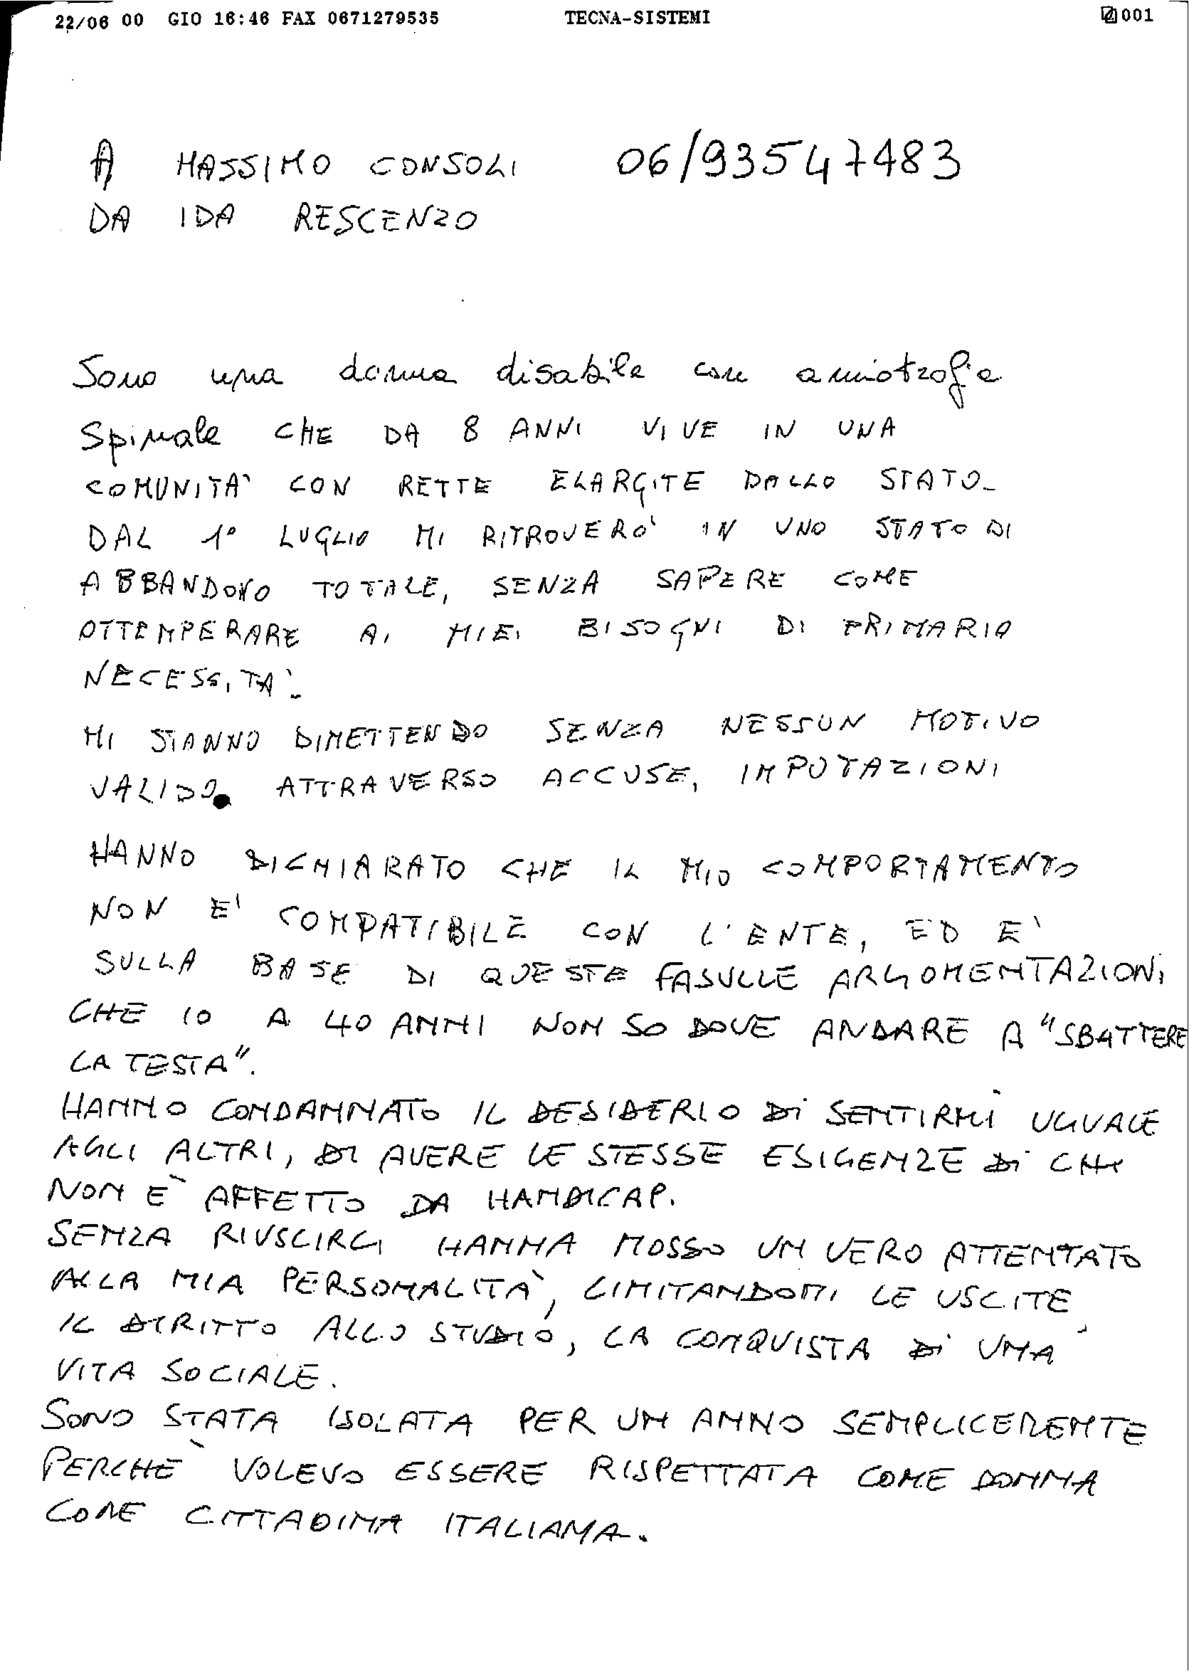 22/06 00 GIO 16:46 FAX 0671279535 TECNA-SISTEMI 001
A MASSIMO CONSOLI 06/93547483
DA IDA RESCENZO
Sono una donna disabile con amiotrofia
Spinale CHE DA 8 ANNI VIVE IN UNA
COMUNITA' CON RETTE ELARGITE DALLO STATO_
DAL 1° LUGLIO MI RITROVERO' IN UNO STATO DI
ABBANDONO TOTALE, SENZA SAPERE COME
OTTEMPERARE AI MIEI BISOGNI DI PRIMARIA
NECESSITA'_
MI STANNO DIMETTENDO SENZA NESSUN MOTIVO
VALIDO. ATTRAVERSO ACCUSE, IMPUTAZIONI
HANNO DICHIARATO CHE IL MIO COMPORTAMENTO
NON E' COMPATIBILE CON L'ENTE, ED E'
SULLA BASE DI QUESTE FASULLE ARGOMENTAZIONI
CHE IO A 40 ANNI NON SO DOVE ANDARE A "SBATTERE
LA TESTA".
HANNO CONDANNATO IL DESIDERIO DI SENTIRMI UGUALE
AGLI ALTRI, DI AVERE LE STESSE ESIGENZE DI CHI
NON E' AFFETTO DA HANDICAP.
SENZA RIUSCIRCI HANNA MOSSO UN VERO ATTENTATO
ALLA MIA PERSONALITA', LIMITANDOMI LE USCITE
IL DIRITTO ALLO STUDIO, LA CONQUISTA DI UNA
VITA SOCIALE.
SONO STATA ISOLATA PER UN ANNO SEMPLICEMENTE
PERCHE' VOLEVO ESSERE RISPETTATA COME DONNA
COME CITTADINA ITALIANA.